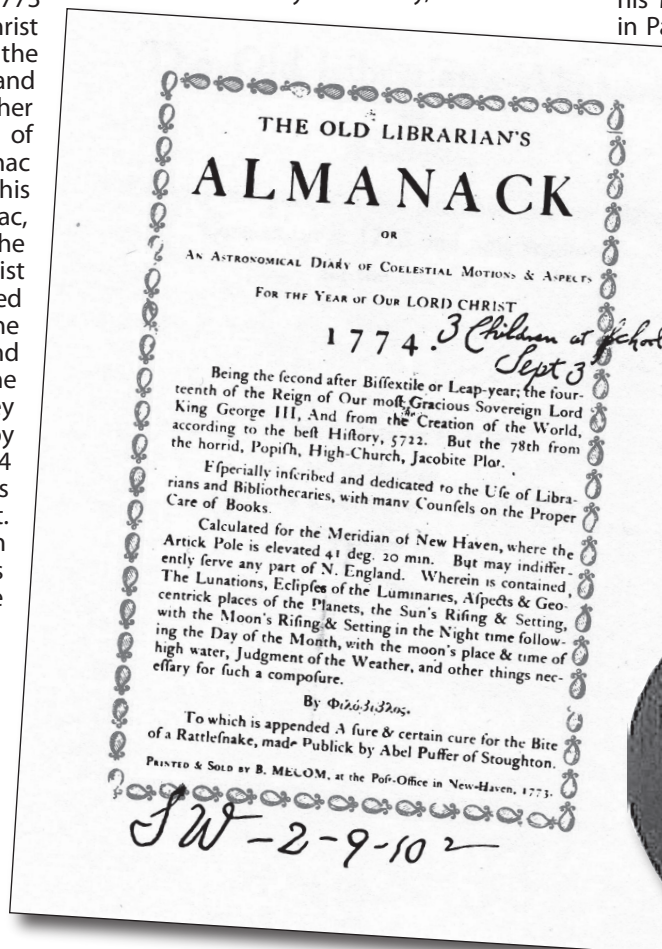 773
hrist
the
and
her
of
nac
his
ac,
he
ist
ed
ne
nd
ne
ey
by
4
s
t.
n
s
e
in Pa
THE OLD LIBRARIAN'S
ALMANACK
OR
AN ASTRONOMICAL DIARY OF COELESTIAL MOTIONS & ASPECTS
FOR THE YEAR OF OUR LORD CHRIST
1774.
3 Children at School
Sept 3
Being the ſecond after Biſſextile or Leap-year; the four-
teenth of the Reign of Our moſt Gracious Sovereign Lord
King George III, And from the Creation of the World,
according to the beſt Hiſtory, 5722. But the 78th from
the horrid, Popiſh, High-Church, Jacobite Plot.
Eſpecially inſcribed and dedicated to the Uſe of Libra-
rians and Bibliothecaries, with many Counſels on the Proper
Care of Books.
Calculated for the Meridian of New Haven, where the
Artick Pole is elevated 41 deg. 20 min. But may indiffer-
ently ſerve any part of N. England. Wherein is contained,
The Lunations, Eclipſes of the Luminaries, Aſpects & Geo-
centrick places of the Planets, the Sun's Riſing & Setting,
with the Moon's Riſing & Setting in the Night time follow-
ing the Day of the Month, with the moon's place & time of
high water, Judgment of the Weather, and other things nec-
eſſary for ſuch a compoſure.
By Φιλόβιβλος.
To which is appended A ſure & certain cure for the Bite
of a Rattleſnake, made Publick by Abel Puffer of Stoughton.
PRINTED & SOLD BY B. MECOM, at the Poſt-Office in New-Haven, 1773.
SW-2-9-10